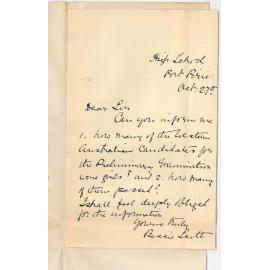 High School
Port Pirie
Oct. 27th
Dear Sir
Can you inform me
1. how many of the Western
Australian Candidates for
the Preliminary Examination
were girls? and 2. how many
of them passed?
I shall feel deeply obliged
for the information
Yours truly
Bessie Scott